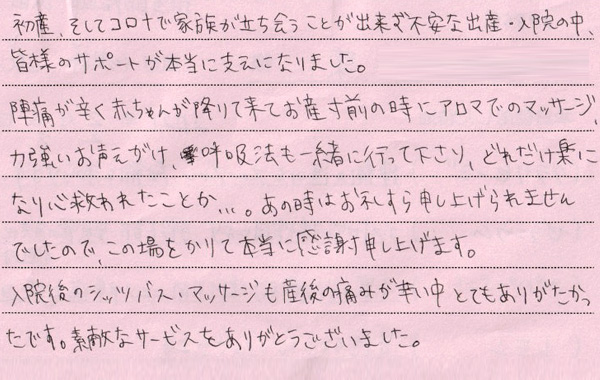 初産、そしてコロナで家族が立ち会うことが出来ず不安な出産・入院の中、
皆様のサポートが本当に支えになりました。
陣痛が辛く赤ちゃんが降りて来てお産寸前の時にアロマでのマッサージ、
力強いお声がけ、呼吸法も一緒に行って下さり、どれだけ楽に
なり心救われたことか…。あの時はお礼すら申し上げられません
でしたので、この場をかりて本当に感謝申し上げます。
入院後のシッツバス・マッサージも産後の痛みが辛い中とてもありがたかっ
たです。素敵なサービスをありがとうございました。